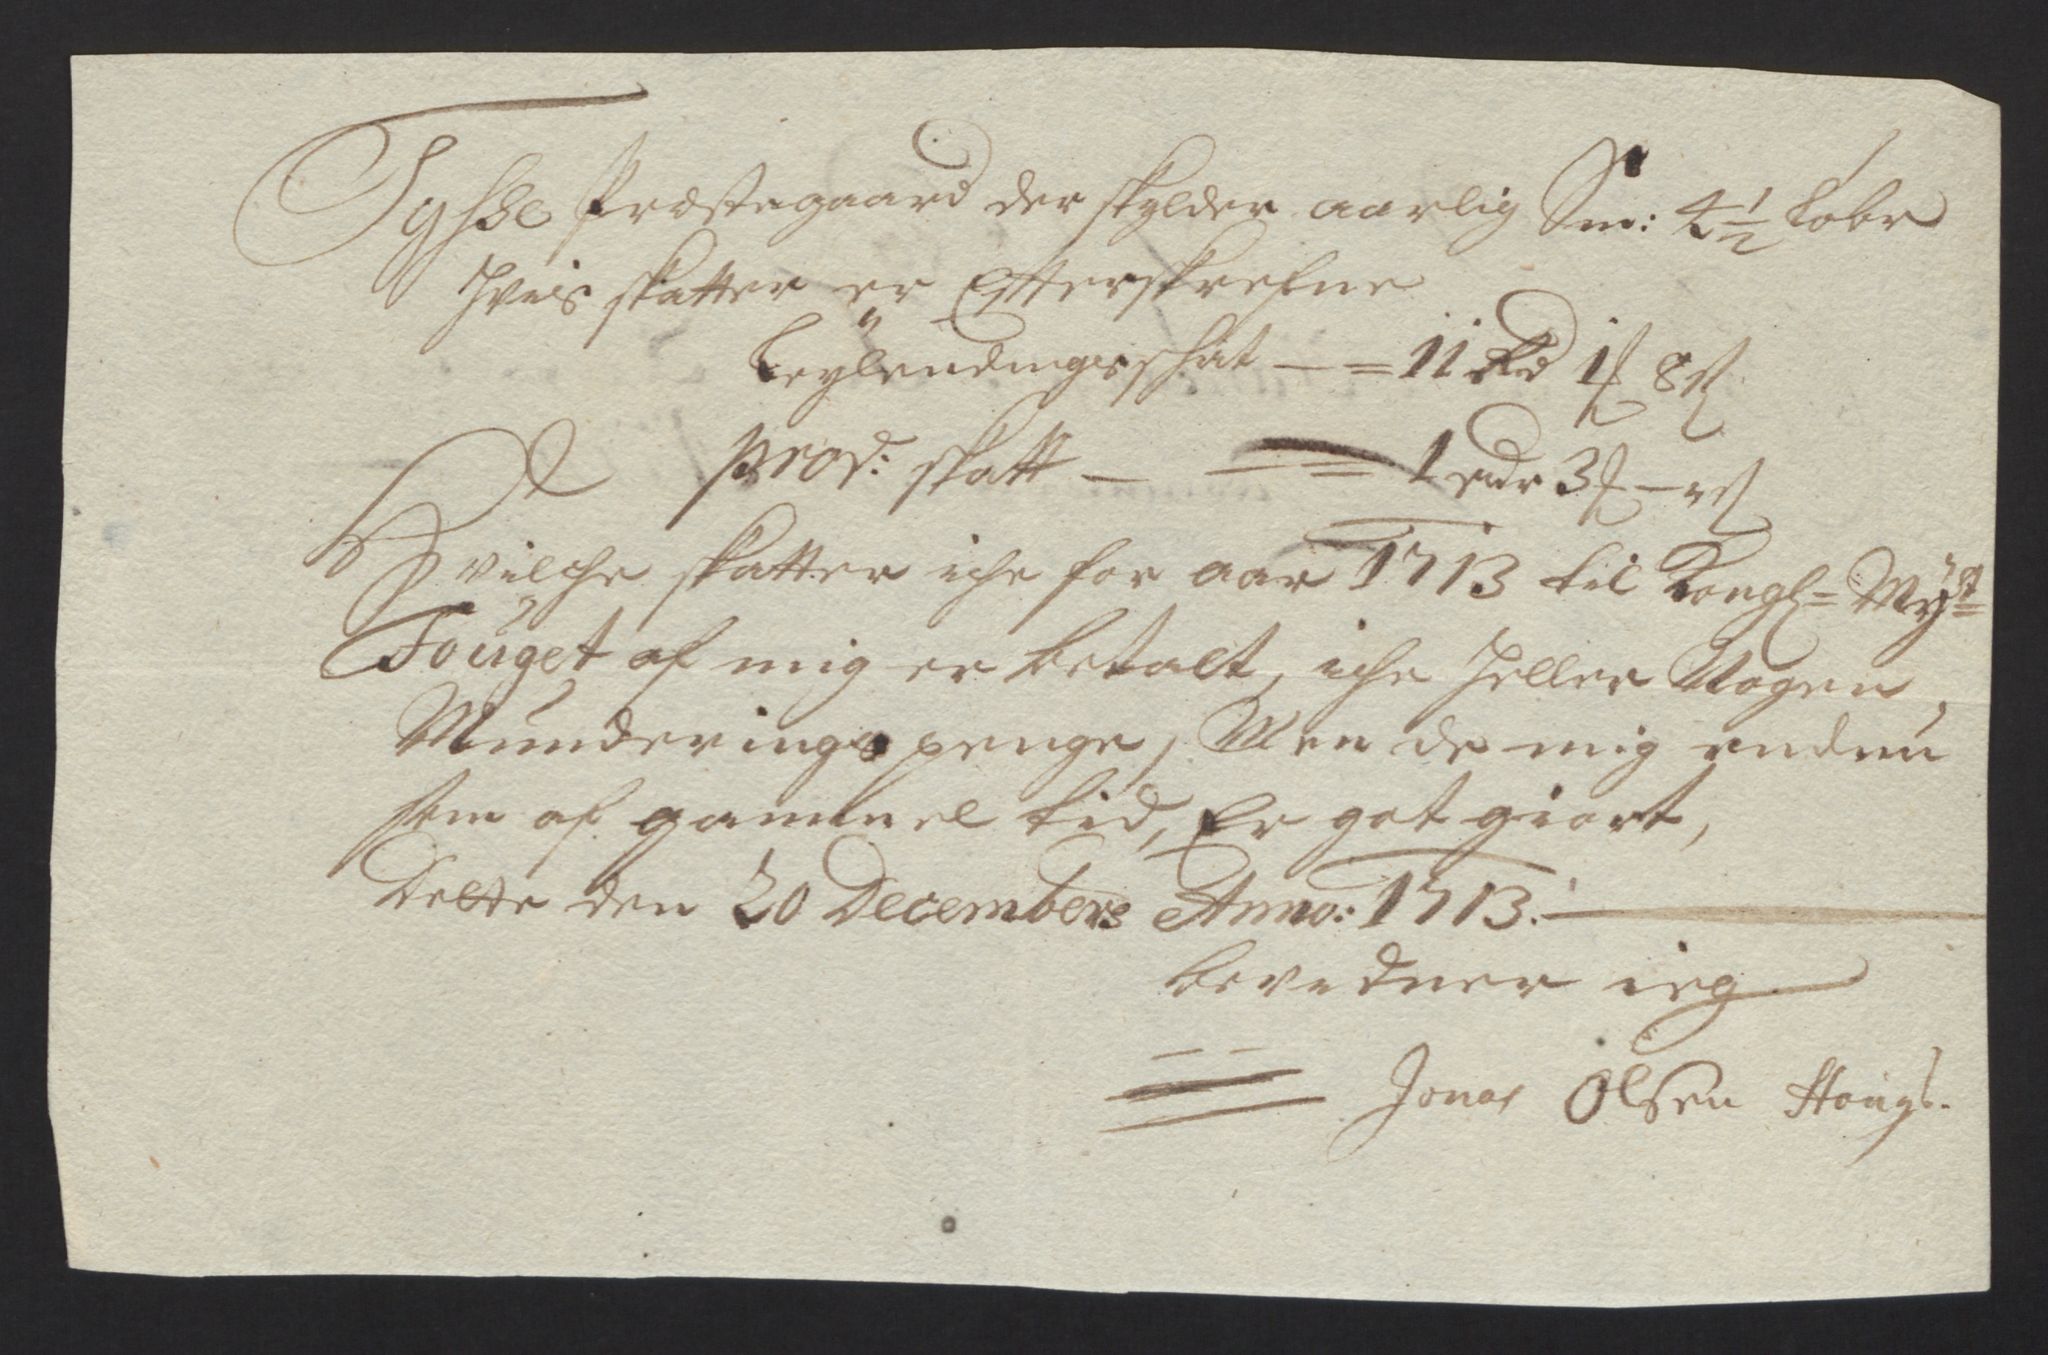 Tysse Præstegaard der skylder aarlig Sm: 4½ Løbr
Hvis skatter er Efterskrefne
Leylendingsschat — = 11 Rd 1 ℔ 8 ß
Prov: skatt — — = 1 rdr 3 ℔ — ß
Hvilche skatter iche for aar 1713 til Kongl= Mÿst=
Foüget af mig er betalt, iche heller Nogen
Munderings penge, Men de mig endnu
som af gammel tid, Er got giort,
Dette den 20 Decembers Anno: 1713: —
bevidner ieg
Jonas Olsen